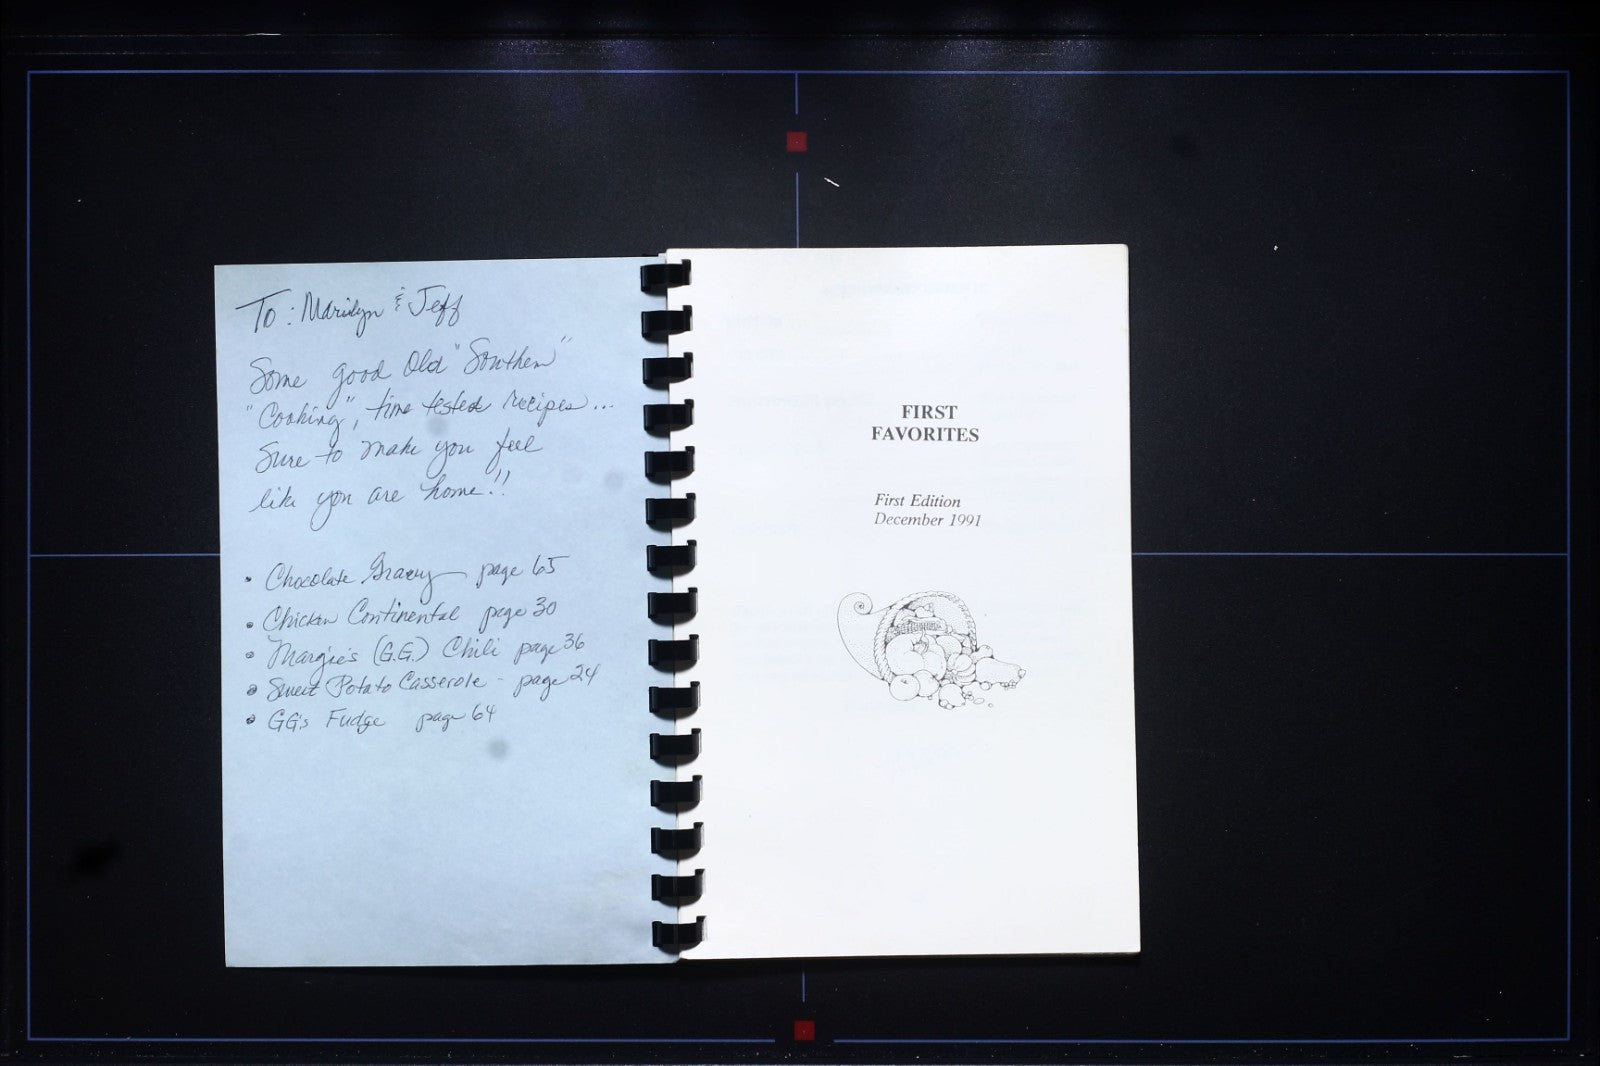 To: Marilyn & Jeff
Some good Old "Southern"
"Cooking", time tested recipes...
Sure to make you feel
like you are home!!
• Chocolate Gravy page 65
• Chicken Continental page 30
• Margie's (G.G.) Chili page 36
• Sweet Potato Casserole - page 24
• GG's Fudge page 64
FIRST
FAVORITES
First Edition
December 1991